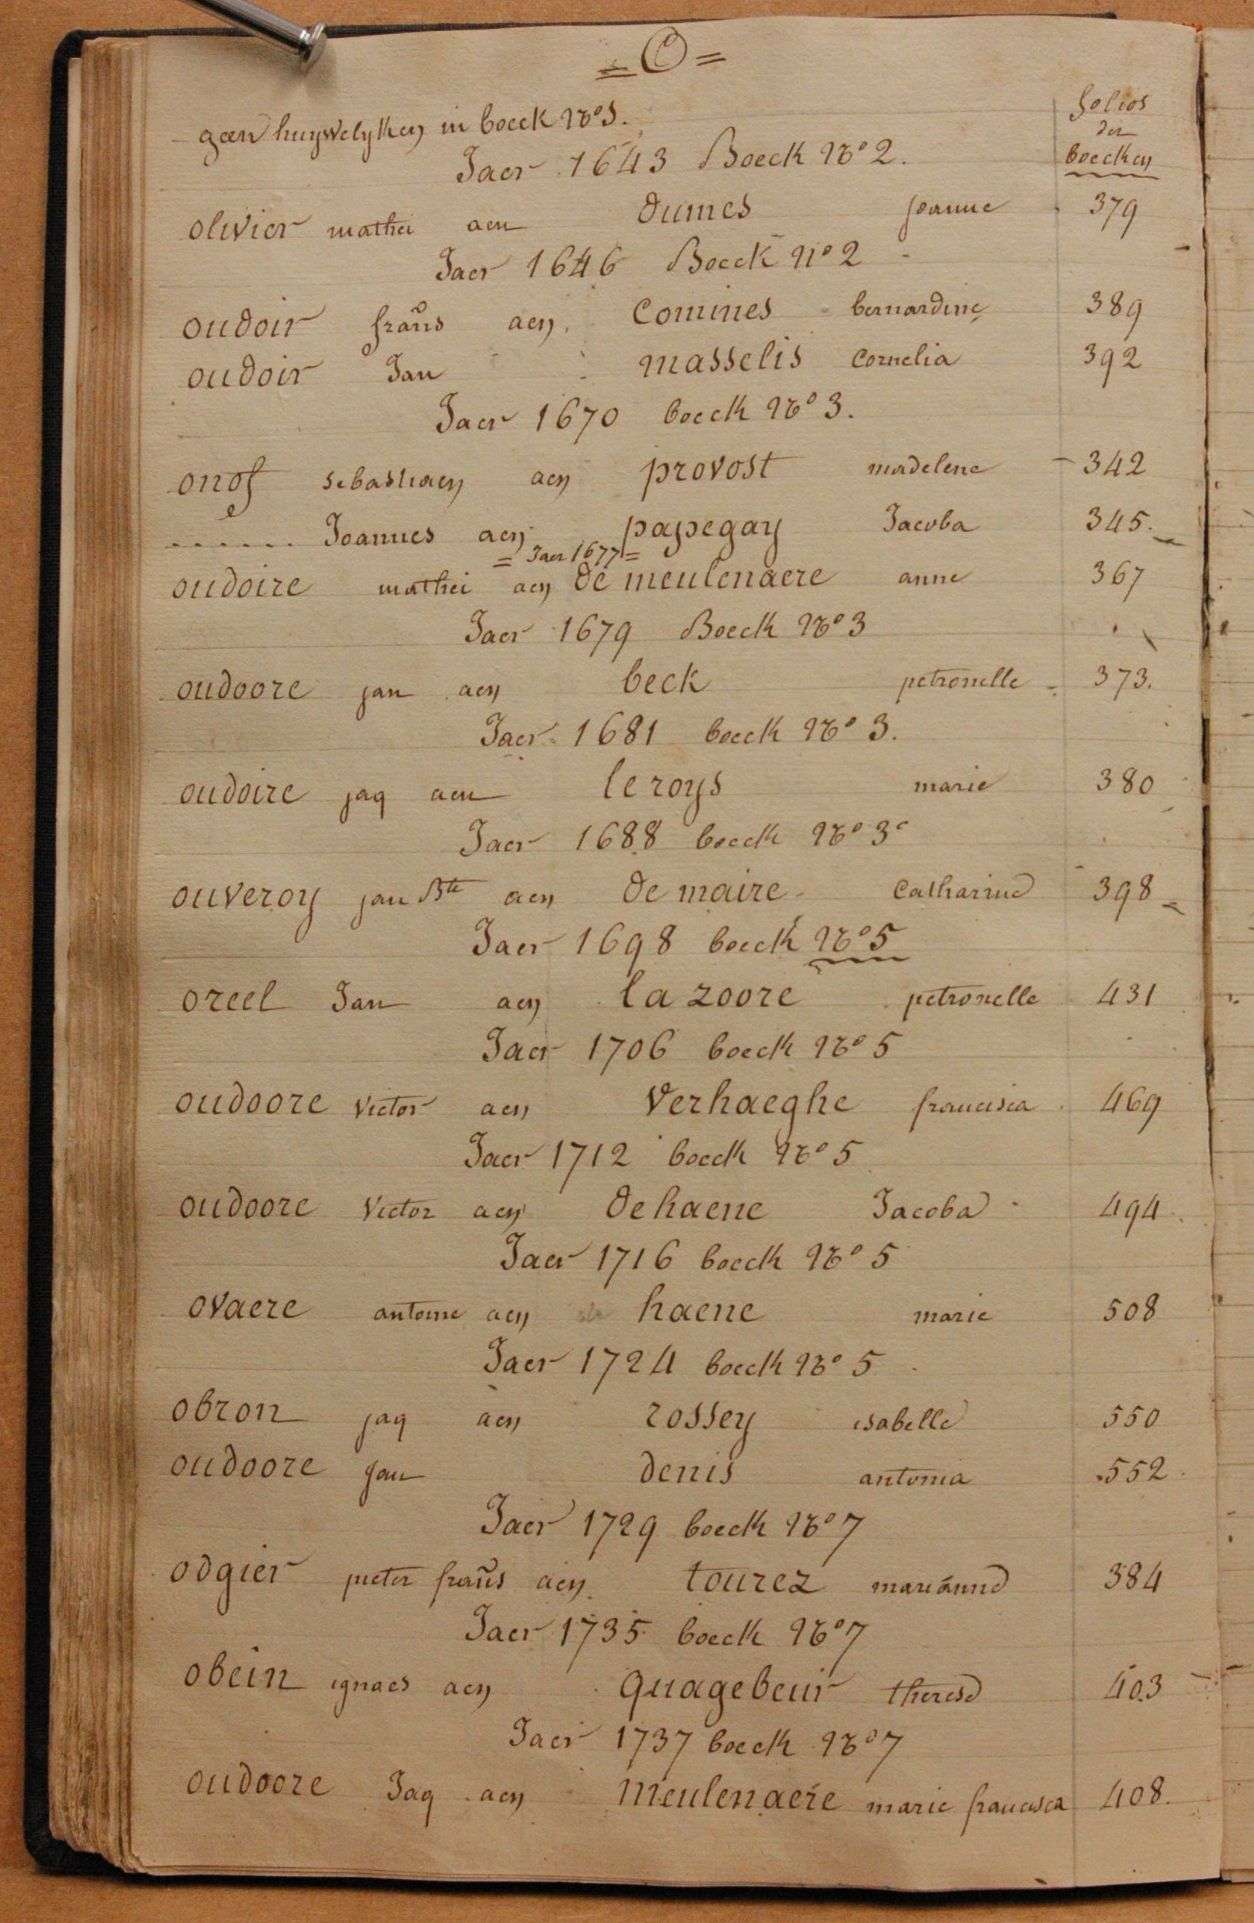 = O =
geen huywelyken in boeck No 1.
folios
der
boecken
Jaer 1643 Boeck No 2.
olivier mathei aen dumes joanne 379
Jaer 1646 Boeck No 2
oudoir frans aen comines bernardine 389
oudoir Jan masselis cornelia 392
Jaer 1670 boeck No 3.
onof sebastiaen aen provost madelene 342
....... Joannes aen papegay Jacoba 345.
= Jaer 1677 =
oudoire mathei aen de meulenaere anne 367
Jaer 1679 Boeck No 3
oudoore jan aen beck petronelle 373.
Jaer 1681 boeck No 3.
oudoire jaq aen le roys marie 380
Jaer 1688 boeck No 3
ouveroy jan Bte aen de maire catharine 398
Jaer 1698 boeck No 5
oreel Jan aen la zoore petronelle 431
Jaer 1706 boeck No 5
oudoore victor aen verhaeghe francisca 469
Jaer 1712 boeck No 5
oudoore victor aen de haene Jacoba 494
Jaer 1716 boeck No 5
ovaere antoine aen haene marie 508
Jaer 1724 boeck No 5
obron jaq aen rossey isabelle 550
oudoore Jan denis antonia 552
Jaer 1729 boeck No 7
odgier pieter frans aen tourez marianne 384
Jaer 1735 boeck No 7
obein ignaes aen quagebeur therese 403
Jaer 1737 boeck No 7
oudoore Jaq aen meulenaere marie francisca 408.